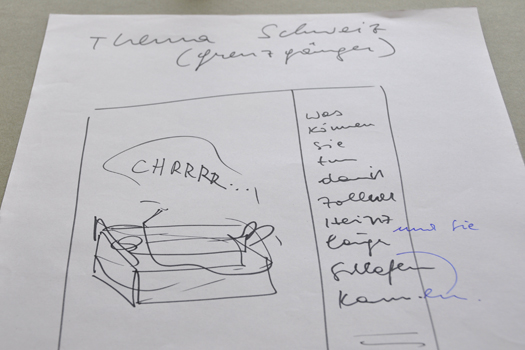 Thema Schweiz
(grenzgänger)
CHRRRR...
was
können
Sie
tun
damit
Zöllner
Heinz
länger und Sie
Schlafen
kann.en.